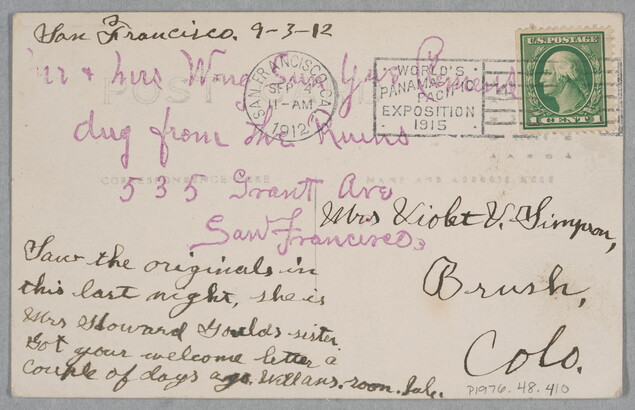 San Francisco. 9-3-12
Mr & Mrs Wong Sun Yue
dug from the Ruins
535 Grant Ave
San Francisco
SAN FRANCISCO, CAL.
SEP 4
11-AM
1912
WORLD'S
PANAMA-PACIFIC
EXPOSITION
1915
U.S. POSTAGE
1 CENT 1
POST
CORRESPONDENCE HERE
NAME AND ADDRESS HERE
Mrs Violet V. Simpson,
Brush,
Colo.
Saw the originals in
this last night, she is
Mrs Howard Goulds sister
Got your welcome letter a
couple of days ago. Will ans. soon.
P1976.48.410